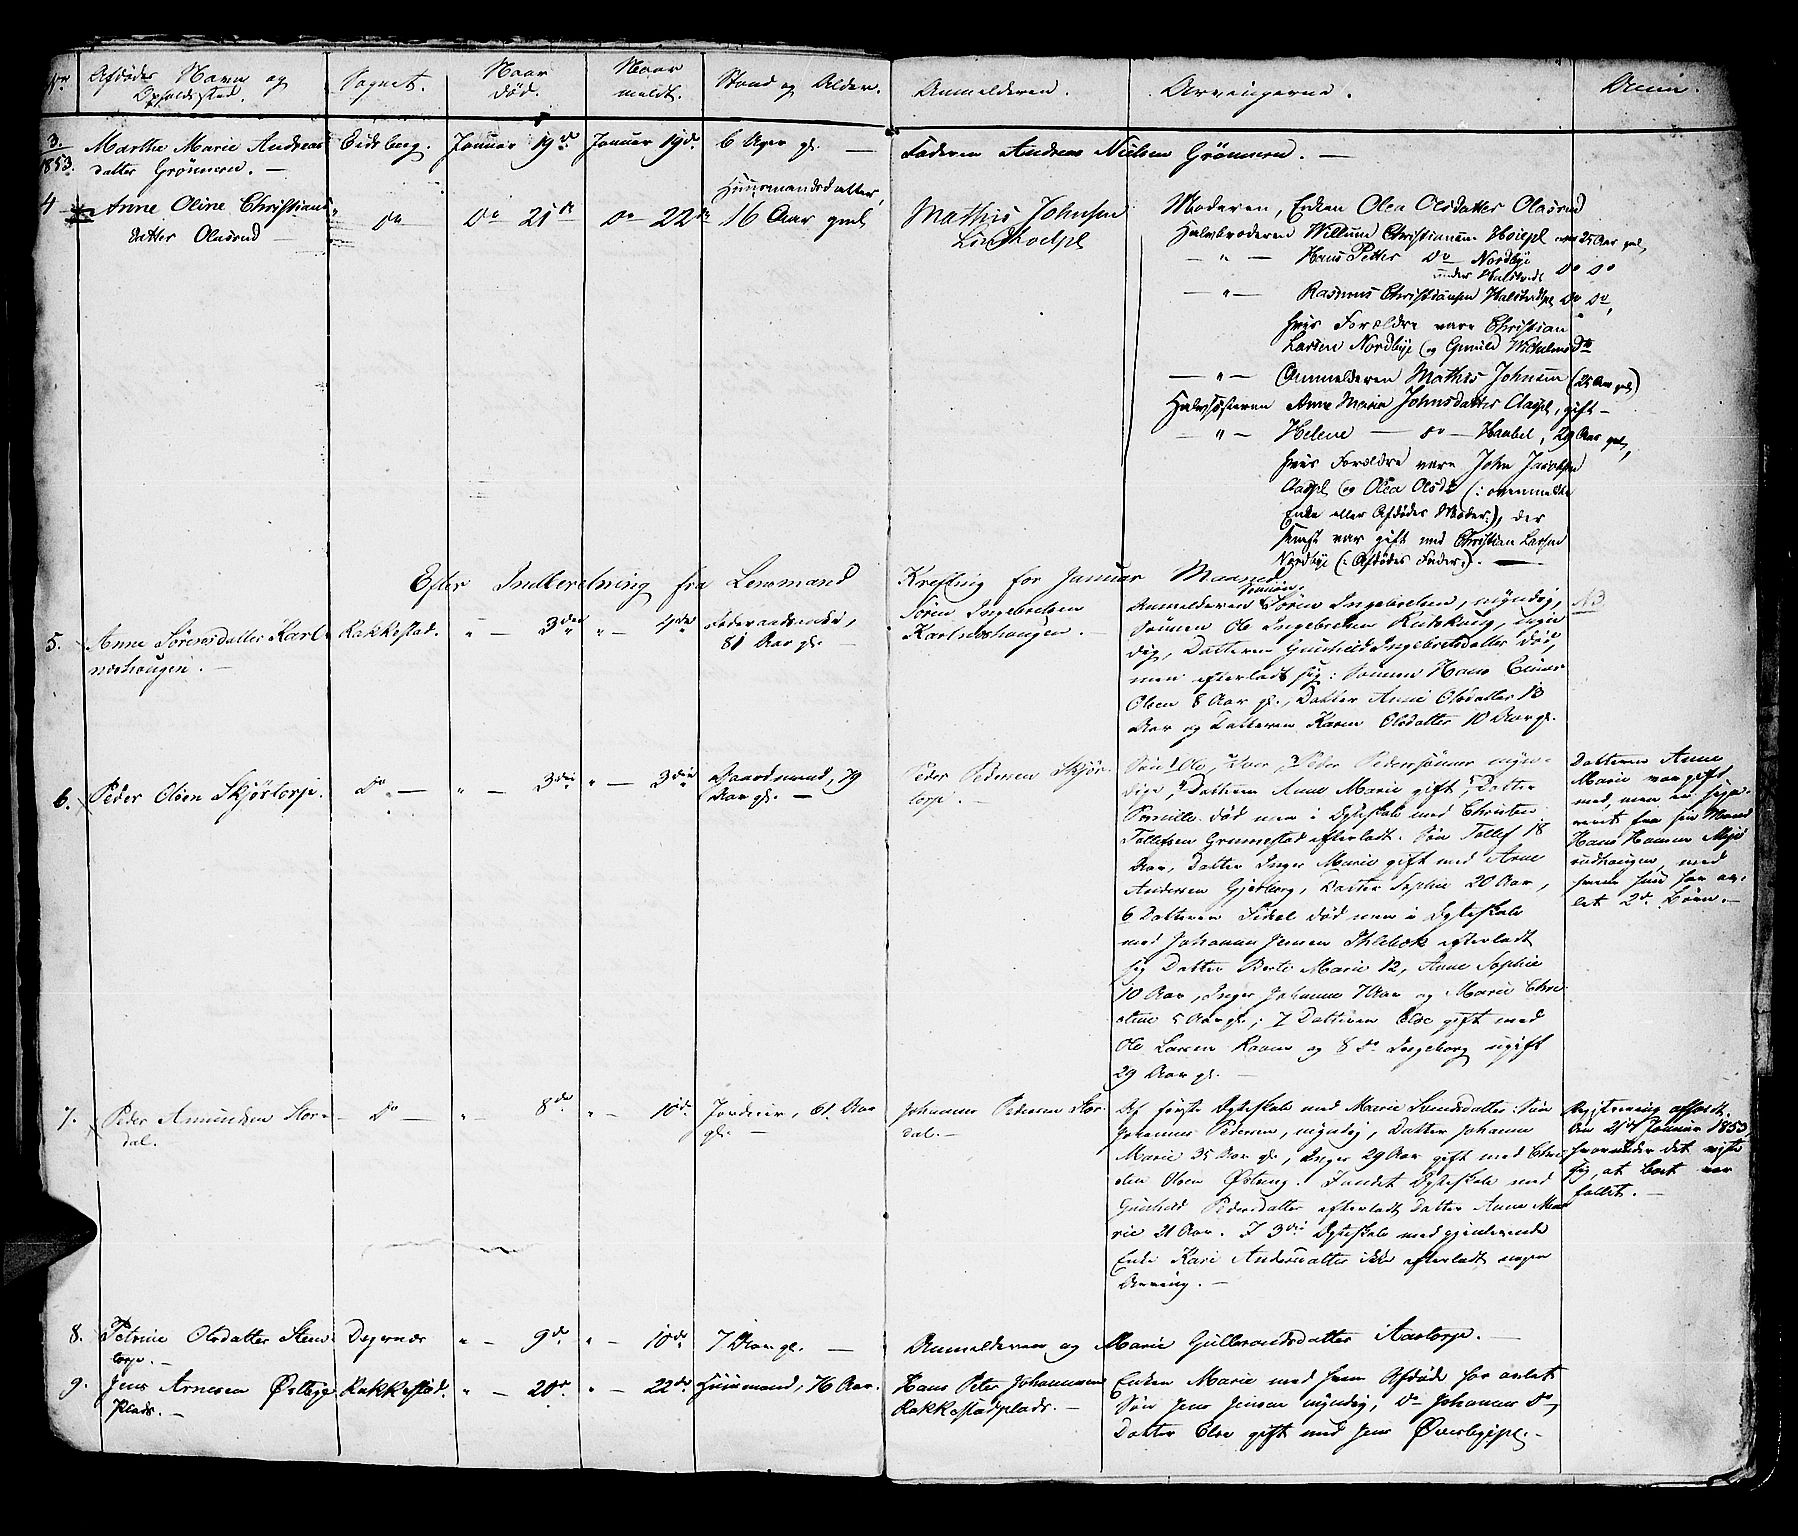 Nr. Afdødes Navn og Opholdssted. Sognet. Naar død. Naar meldt. Stand og Alder. Anmelderen. Arvingerne. Anm.
3. Marthe Marie Andreas Eidsberg. Januar 19de Januar 19de 6 Aar gl. — Faderen Andreas Nielsen Grönneren. —
1853. datter Grönneren. —
4 Anne Oline Christians do do 21de do 22de Huusmandsdatter, 16 Aar gml. Mathis Johnsen
datter Olasrud —
Moderen, Enken Olea Olsdatter Olasrud
Halvbroderen Willum Christiansen Hoiepl. over 25 Aar gl,
— " — Hans Petter do Nordbye
under Halstvedt do do
— " — Rasmus Christiansen Halstvedtpl. do do,
hvis Forældre vare Christian
Larsen Nordbye og Gunild Wilhelmsd.
— " — Anmelderen Mathis Johnsen (25 Aar gl.)
Halvsøsteren Anne Marie Johnsdatter Aaspl, gift —
— " — Helene — do — Haabel, 29 Aar gl,
hvis Forældre vare John Jacobsen
Aaspl. og Olea Olsd. (: ovenmeldte
Enke eller Afdødes Moder:), der
var gift med Christian Larsen
Nordbye (: Afdødes Fader:). —
Efter Indberetning fra Lensmand Krefting for Januar Maaned
5. Anne Sörensdatter Karl- Rakkestad. " — 3die " — 4de Föderaadsenke, Sören Ingebretsen
næshaugen. — 81 Aar gl. — Karlnæshaugen. —
Anmelderen Sönnen Sören Ingebretsen, myndig,
Sönnen Ole Ingebretsen, myn-
dig, Datteren Gunhild Ingebretsdatter död,
men efterladt sig: Sönnen Hans
Olsen 8 Aar gl., Datter Anne Olsdatter 13
Aar og Datteren Karen Olsdatter 10 Aar gl.
NB
6. Peder Olsen Skjörtorp. do — " — 3die " — 3die Gaardmand, 79 Peder Pedersen Skjör-
Aar gl. — torp. —
Sön 1 Ole, 2 Peder Pedersönner myn-
dige, Datteren Anne Marie gift, 5 Datter
Pernille död men i Ægteskab med Christen
Tollefsen Grimestad efterladt: Sön Tollef 18
Aar, Datter Inger Marie gift med Arne
Andersen, Datter Sophie 20 Aar,
6 Datteren Sidsel död men i Ægteskab
med Johannes Jensen Ihlebæk efterladt
sig Datter Berte Marie 12, Anne Sophie
10 Aar, Inger Johanne 7 Aar og Marie Chri-
stine 5 Aar gl.; 7 Datteren Else gift med
Ole Larsen Raaen og 8 do Ingeborg ugift
29 Aar gl. —
Datteren Anne
Marie var gift
med, men er sepa-
reret fra sin Mand
Hans Hansen
med
hvem hun har av-
let 2de Börn. —
7. Peder Amundsen Stor- do — " — 8de " — 10de Jordeier, 61 Aar Johannes Pedersen Stor-
dal. gl. — dal. —
Af förste Ægteskab med Marie Svendsdatter: Sön
Johannes Pedersen, myndig, Datter Johanne
Marie 35 Aar gl., Inger 29 Aar gift med Chri-
Olsen Østeng. I andet Ægteskab med
Gunhild Pedersdatter efterladt Datter Anne Ma-
rie 21 Aar. I 3die Ægteskab med gjenlevende
Enke Kari Andersdatter ikke efterladt nogen
Arving. —
Registrering afholdt
den 21de Januar 1853
hvorunder det viste
sig, at boet var
fallit. —
8. Petrine Olsdatter Sten- Degernæs " — 9de " — 10de 7 Aar gl. — Anmelderen og Marie Gulbrandsdatter Aastorp. —
torp. —
9. Jens Arnesen Østbye Rakkestad. " — 20de " — 22de Huusmand, 76 Aar. Hans Peter Johannesen
Plads. — Rakkestadplads. —
Enken Marie med hvem Afdøde har avlet
Sön Jens Jensen myndig, do Johannes do,
Datter Else gift med Jens Øverbyepl. —